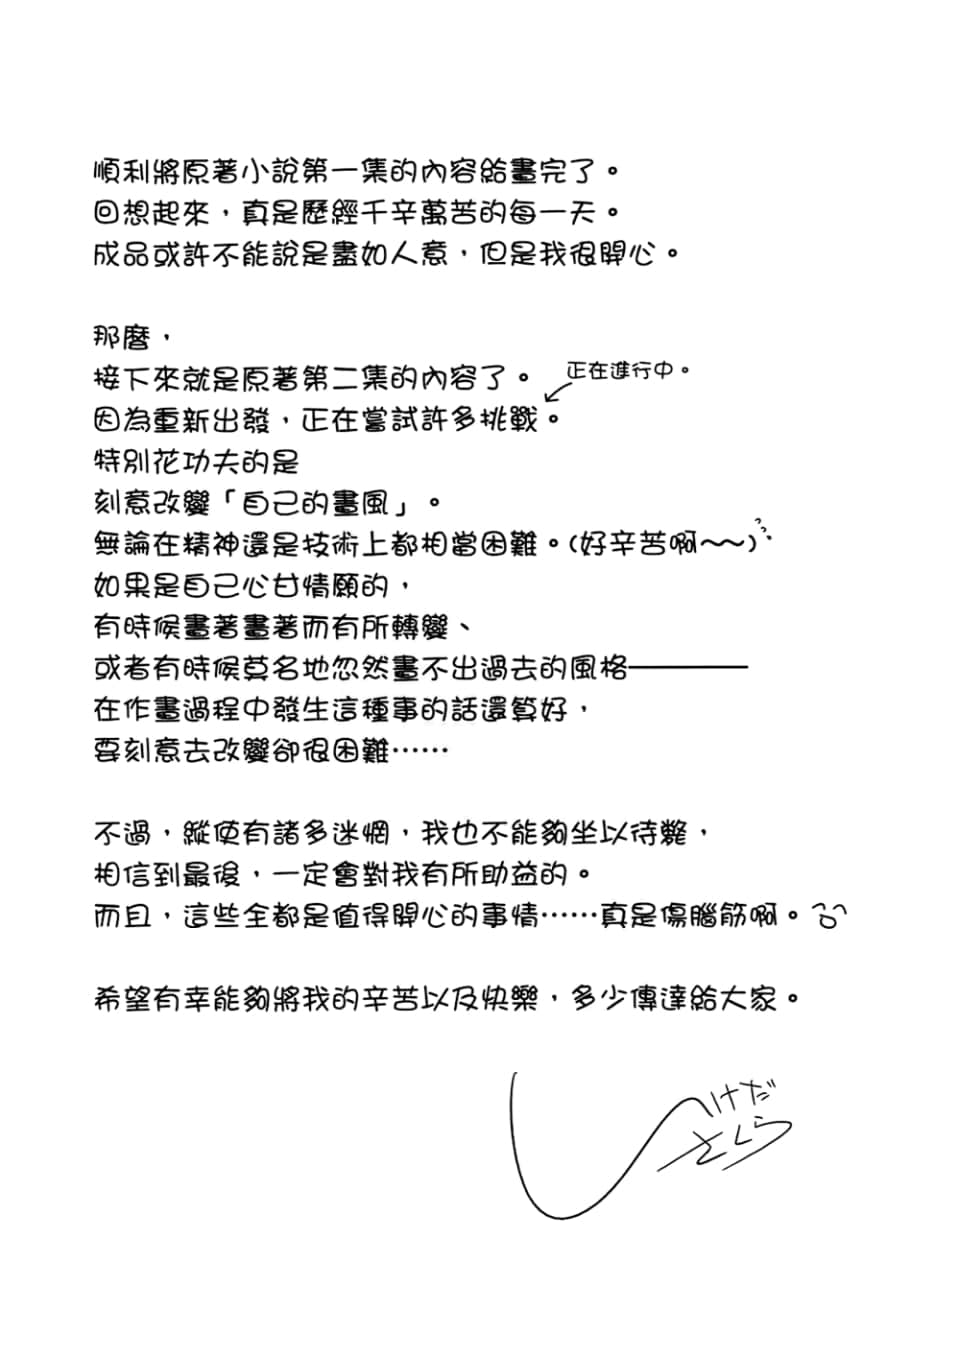 順利將原著小說第一集的內容給畫完了。
回想起來，真是歷經千辛萬苦的每一天。
成品或許不能說是盡如人意，但是我很開心。
那麼，
接下來就是原著第二集的內容了。
正在進行中。
因為重新出發，正在嘗試許多挑戰。
特別花功夫的是
刻意改變「自己的畫風」。
無論在精神還是技術上都相當困難。(好辛苦啊～～)
如果是自己心甘情願的，
有時候畫著畫著而有所轉變、
或者有時候莫名地忽然畫不出過去的風格————
在作畫過程中發生這種事的話還算好，
要刻意去改變卻很困難……
不過，縱使有諸多迷惘，我也不能夠坐以待斃，
相信到最後，一定會對我有所助益的。
而且，這些全都是值得開心的事情……真是傷腦筋啊。
希望有幸能夠將我的辛苦以及快樂，多少傳達給大家。
しけだ
さくら